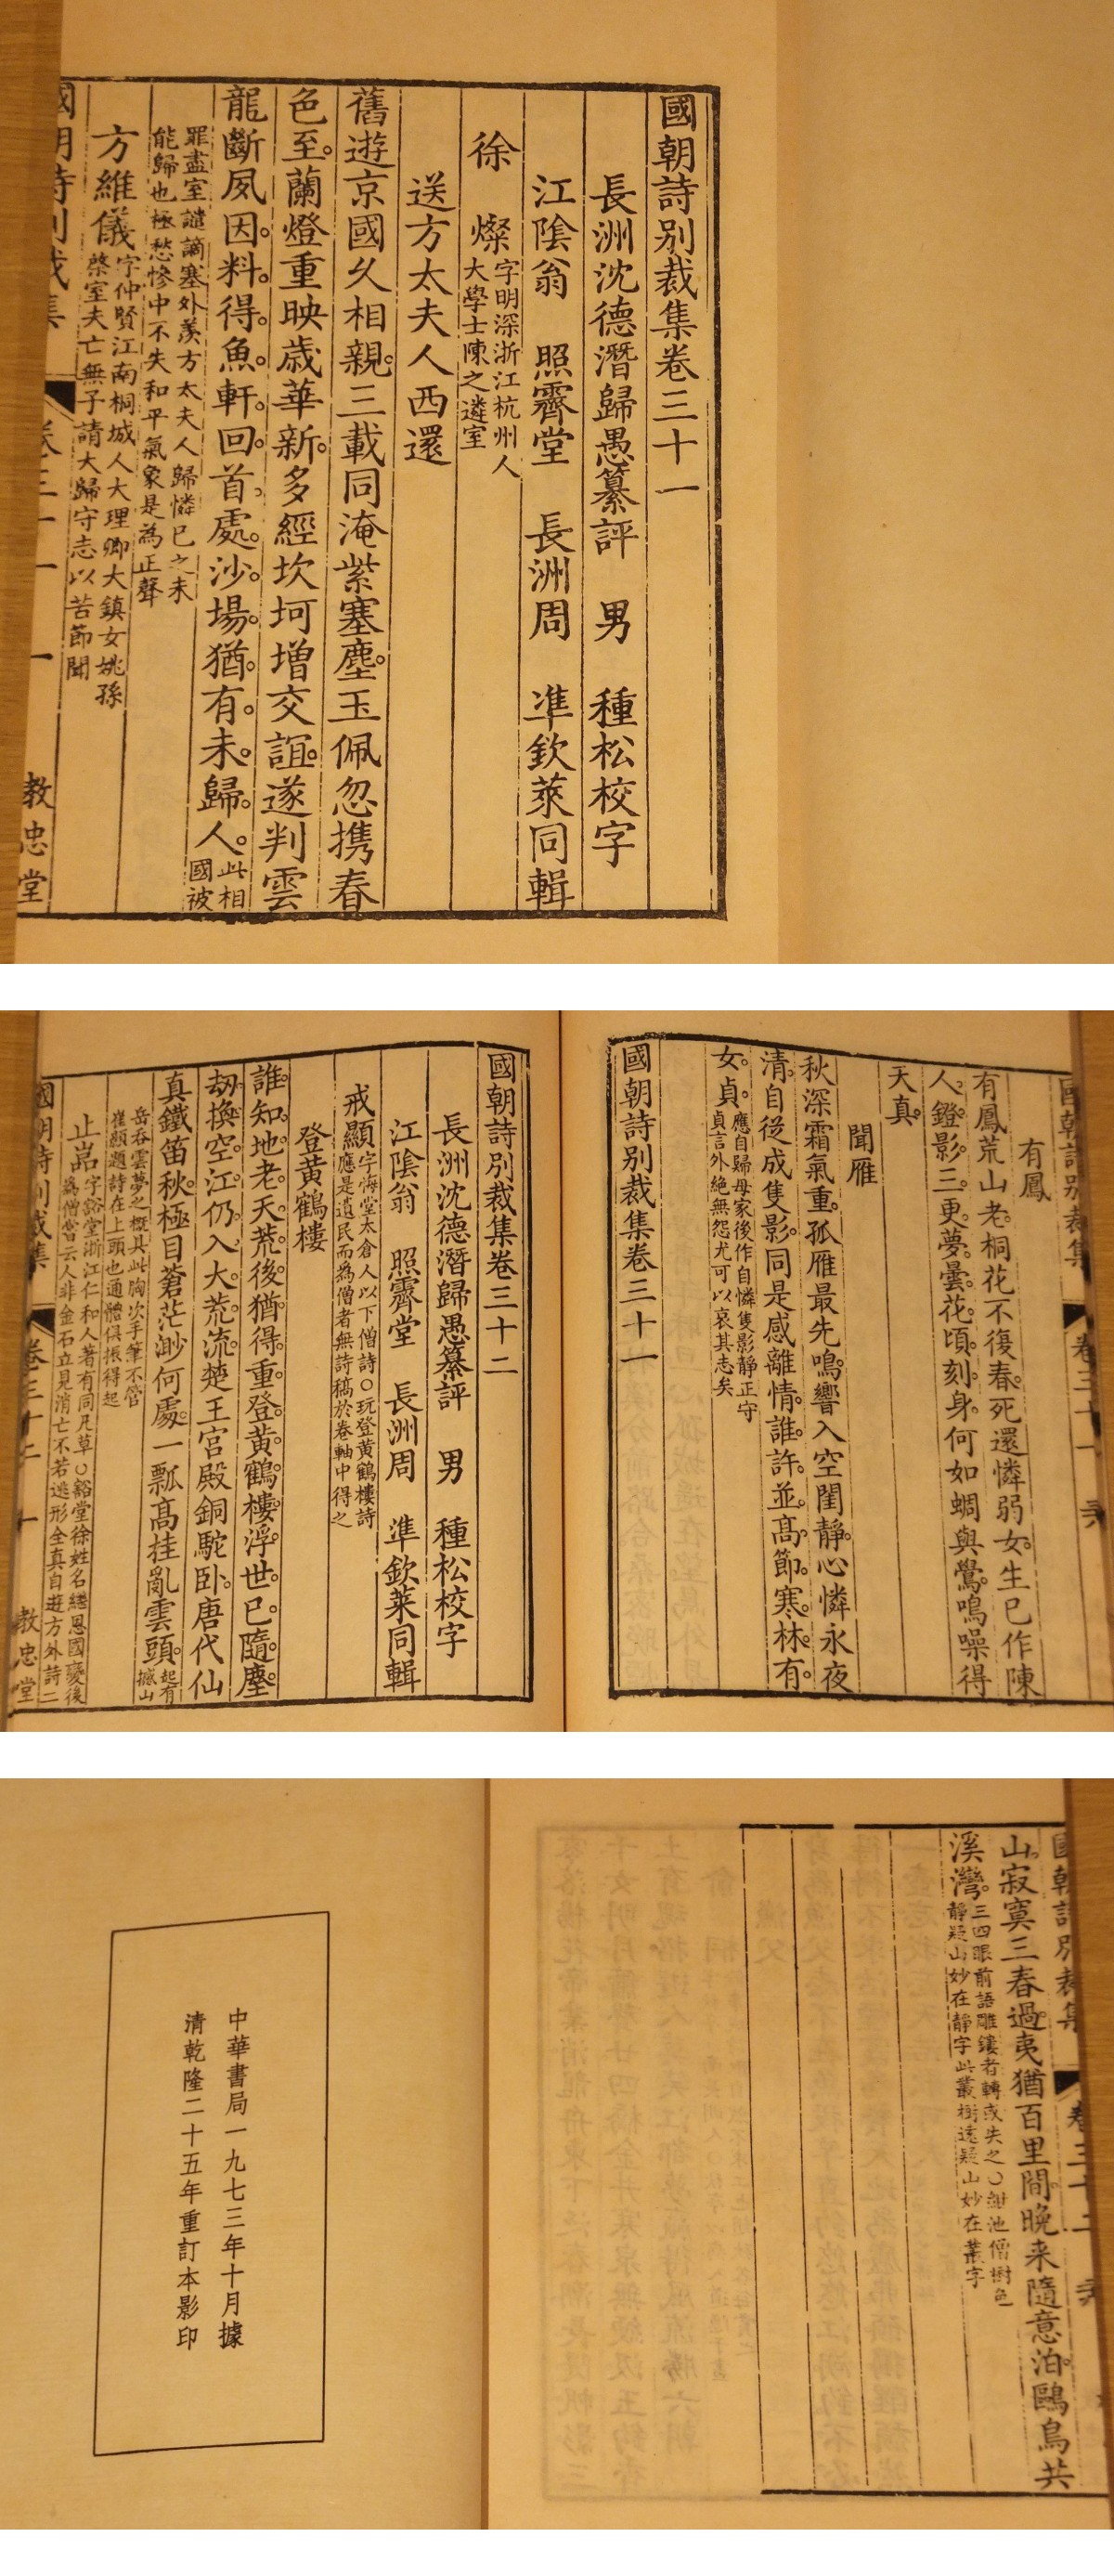 國朝詩別裁集卷三十一
長洲沈德潛歸愚纂評　男　種松校字
江陰翁　照霽堂　長洲周　準欽萊同輯
徐　燦字明深浙江杭州人
大學士陳之遴室
送方太夫人西還
舊遊京國久相親三載同淹紫塞塵玉佩忽携春
色至蘭燈重映歲華新多經坎坷增交誼遂判雲
龍斷夙因料得魚軒回首處沙場猶有未歸人此相
國被
罪盡室譴謫塞外羨方太夫人歸憐己之未
能歸也極愁慘中不失和平氣象是為正聲
方維儀字仲賢江南桐城人大理卿大鎮女姚孫
棨室夫亡無子請大歸守志以苦節聞
教忠堂
國朝詩別裁集　卷三十一
有鳳
有鳳荒山老桐花不復春死還憐弱女生已作陳
人鐙影三更夢曇花頃刻身何如蜩與鷽鳴噪得
天真
聞雁
秋深霜氣重孤雁最先鳴響入空閨靜心憐永夜
清自從成隻影同是感離情誰許並高節寒林有
女貞應自歸母家後作自憐隻影靜正守
貞言外絕無怨尤可以哀其志矣
國朝詩別裁集卷三十一
國朝詩別裁集卷三十二
長洲沈德潛歸愚纂評　男　種松校字
江陰翁　照霽堂　長洲周　準欽萊同輯
戒顯字悔堂太倉人以下僧詩○玩登黃鶴樓詩
應是遺民而為僧者無詩稿於卷軸中得之
登黃鶴樓
誰知地老天荒後猶得重登黃鶴樓浮世已隨塵
劫換空江仍入大荒流楚王宮殿銅駝臥唐代仙
真鐵笛秋極目蒼茫渺何處一瓢高挂亂雲頭起有
撼山
岳吞雲夢之概具此胸次手筆不管
崔顥題詩在上頭也通體俱振得起
止嵒字豁堂浙江仁和人著有同凡草○豁堂徐姓名繼恩國變後
為僧嘗云人非金石立見消亡不若逃形全真自遊方外詩二
卷三十二　一　教忠堂
國朝詩別裁集　卷三十二
山寂寞三春過夷猶百里間晚来隨意泊鷗鳥共
溪灣三四眼前語雕鏤者轉或失之○謝池僧樹色
靜疑山妙在靜字此叢樹遠疑山妙在叢字
中華書局一九七三年十月據
清乾隆二十五年重訂本影印